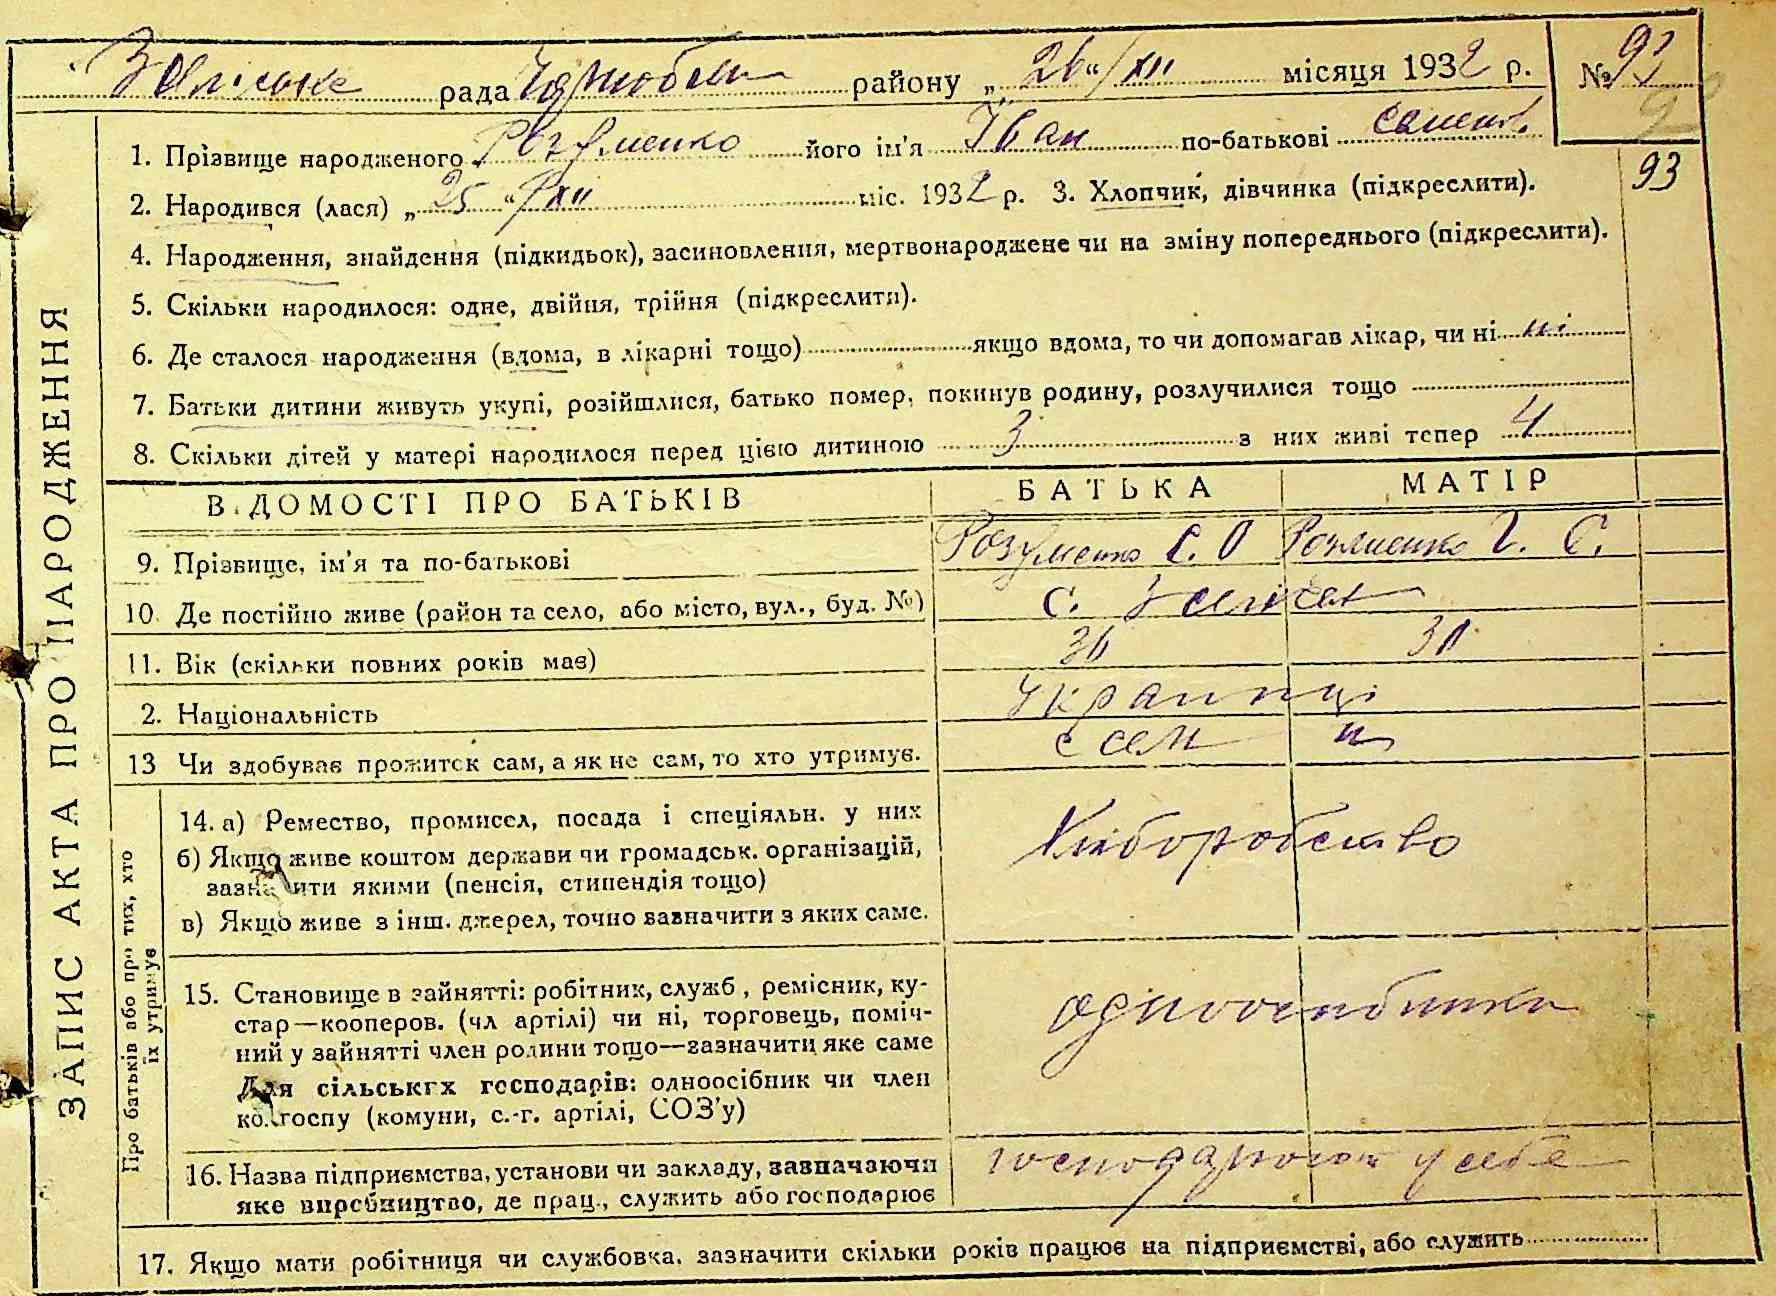 Заліське рада Чорнобил району „26“/XII місяця 1932 р. № 92
93
1. Прізвище народженого Розуменко його ім'я Іван по-батькові Семенов.
2. Народився (лася) „25“/XII міс. 1932 р. 3. Хлопчик, дівчинка (підкреслити).
4. Народження, знайдення (підкидьок), засиновлення, мертвонароджене чи на зміну попереднього (підкреслити).
5. Скільки народилося: одне, двійня, трійня (підкреслити).
6. Де сталося народження (вдома, в лікарні тощо) якщо вдома, то чи допомагав лікар, чи ні ні
7. Батьки дитини живуть укупі, розійшлися, батько помер, покинув родину, розлучилися тощо
8. Скільки дітей у матері народилося перед цією дитиною 3 з них живі тепер 4
ЗАПИС АКТА ПРО НАРОДЖЕННЯ
ВІДОМОСТІ ПРО БАТЬКІВ БАТЬКА МАТІР
9. Прізвище, ім'я та по-батькові Розуменко С. О Розуменко Г. С.
10. Де постійно живе (район та село, або місто, вул., буд. №) с.
11. Вік (скільки повних років має) 36 30
2. Національність Українці
13 Чи здобуває прожиток сам, а як не сам, то хто утримує. сам
Про батьків або про тих, хто
їх утримує
14. а) Ремество, промисел, посада і спеціяльн. у них
б) Якщо живе коштом держави чи громадськ. організацій,
зазначити якими (пенсія, стипендія тощо)
в) Якщо живе з інш. джерел, точно зазначити з яких саме.
Хліборобство
15. Становище в зайнятті: робітник, служб, ремісник, ку-
стар—кооперов. (чл артілі) чи ні, торговець, поміч-
ний у зайнятті член родини тощо—зазначити яке саме
Для сільських господарів: одноосібник чи член
колгоспу (комуни, с.-г. артілі, СОЗ'у)
одноосібники
16. Назва підприємства, установи чи закладу, зазначаючи
яке виробництво, де прац., служить або господарює
у себе
17. Якщо мати робітниця чи службовка, зазначити скільки років працює на підприємстві, або служить